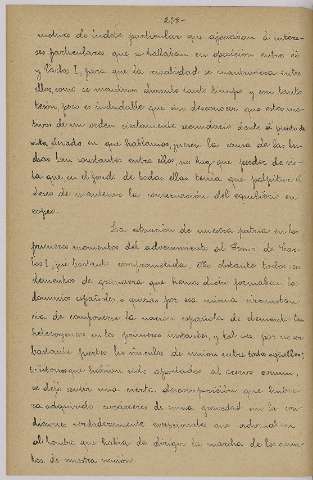 - 278 -
motivos de índole particular que agenciaran á intere-
ses particulares que se hallaban en oposición entre sí
y Carlos I, para que la rivalidad se mantuviera entre
ellos, como se mantuvo durante tanto tiempo y con tanto
tesón, pero es indudable que sin desconocer que estos mo-
tivos de un orden ciertamente secundario dado el punto de
vista elevado en que hablamos, fuesen la causa de las lu-
chas tan constantes entre ellos, no hay que perder de vis-
ta que en el fondo de todas ellas tenía que palpitar el
deseo de mantener la conservación del equilibrio eu-
ropeo.
La situación de nuestra patria en los
primeros momentos del advenimiento al trono de Car-
los I, fue bastante comprometida. No obstante todos los
elementos de grandeza que hemos dicho formaban los
dominios españoles, ó quizás por esa misma circunstan-
cia de componerse la nación española de elementos tan
heterogéneos en los primeros instantes, y tal vez por no ser
bastante fuertes los vínculos de unión entre todos aquellos
territorios que habían sido aportados al acervo común,
se dejó sentir una cierta descomposición que hubie-
ra adquirido caracteres de suma gravedad sin las con-
diciones verdaderamente excepcionales que adornaban
al hombre que había de dirigir la marcha de los asun-
tos de nuestra nación.